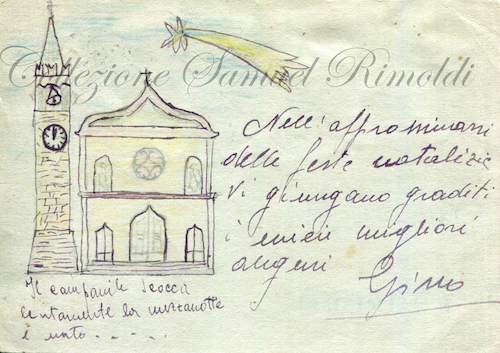 Collezione Samuel Rimoldi
Nell'approssimarsi
delle feste natalizie
Vi giungano graditi
i miei migliori
auguri Gino
Il campanile scocca
lentamente la mezzanotte
è nato.....